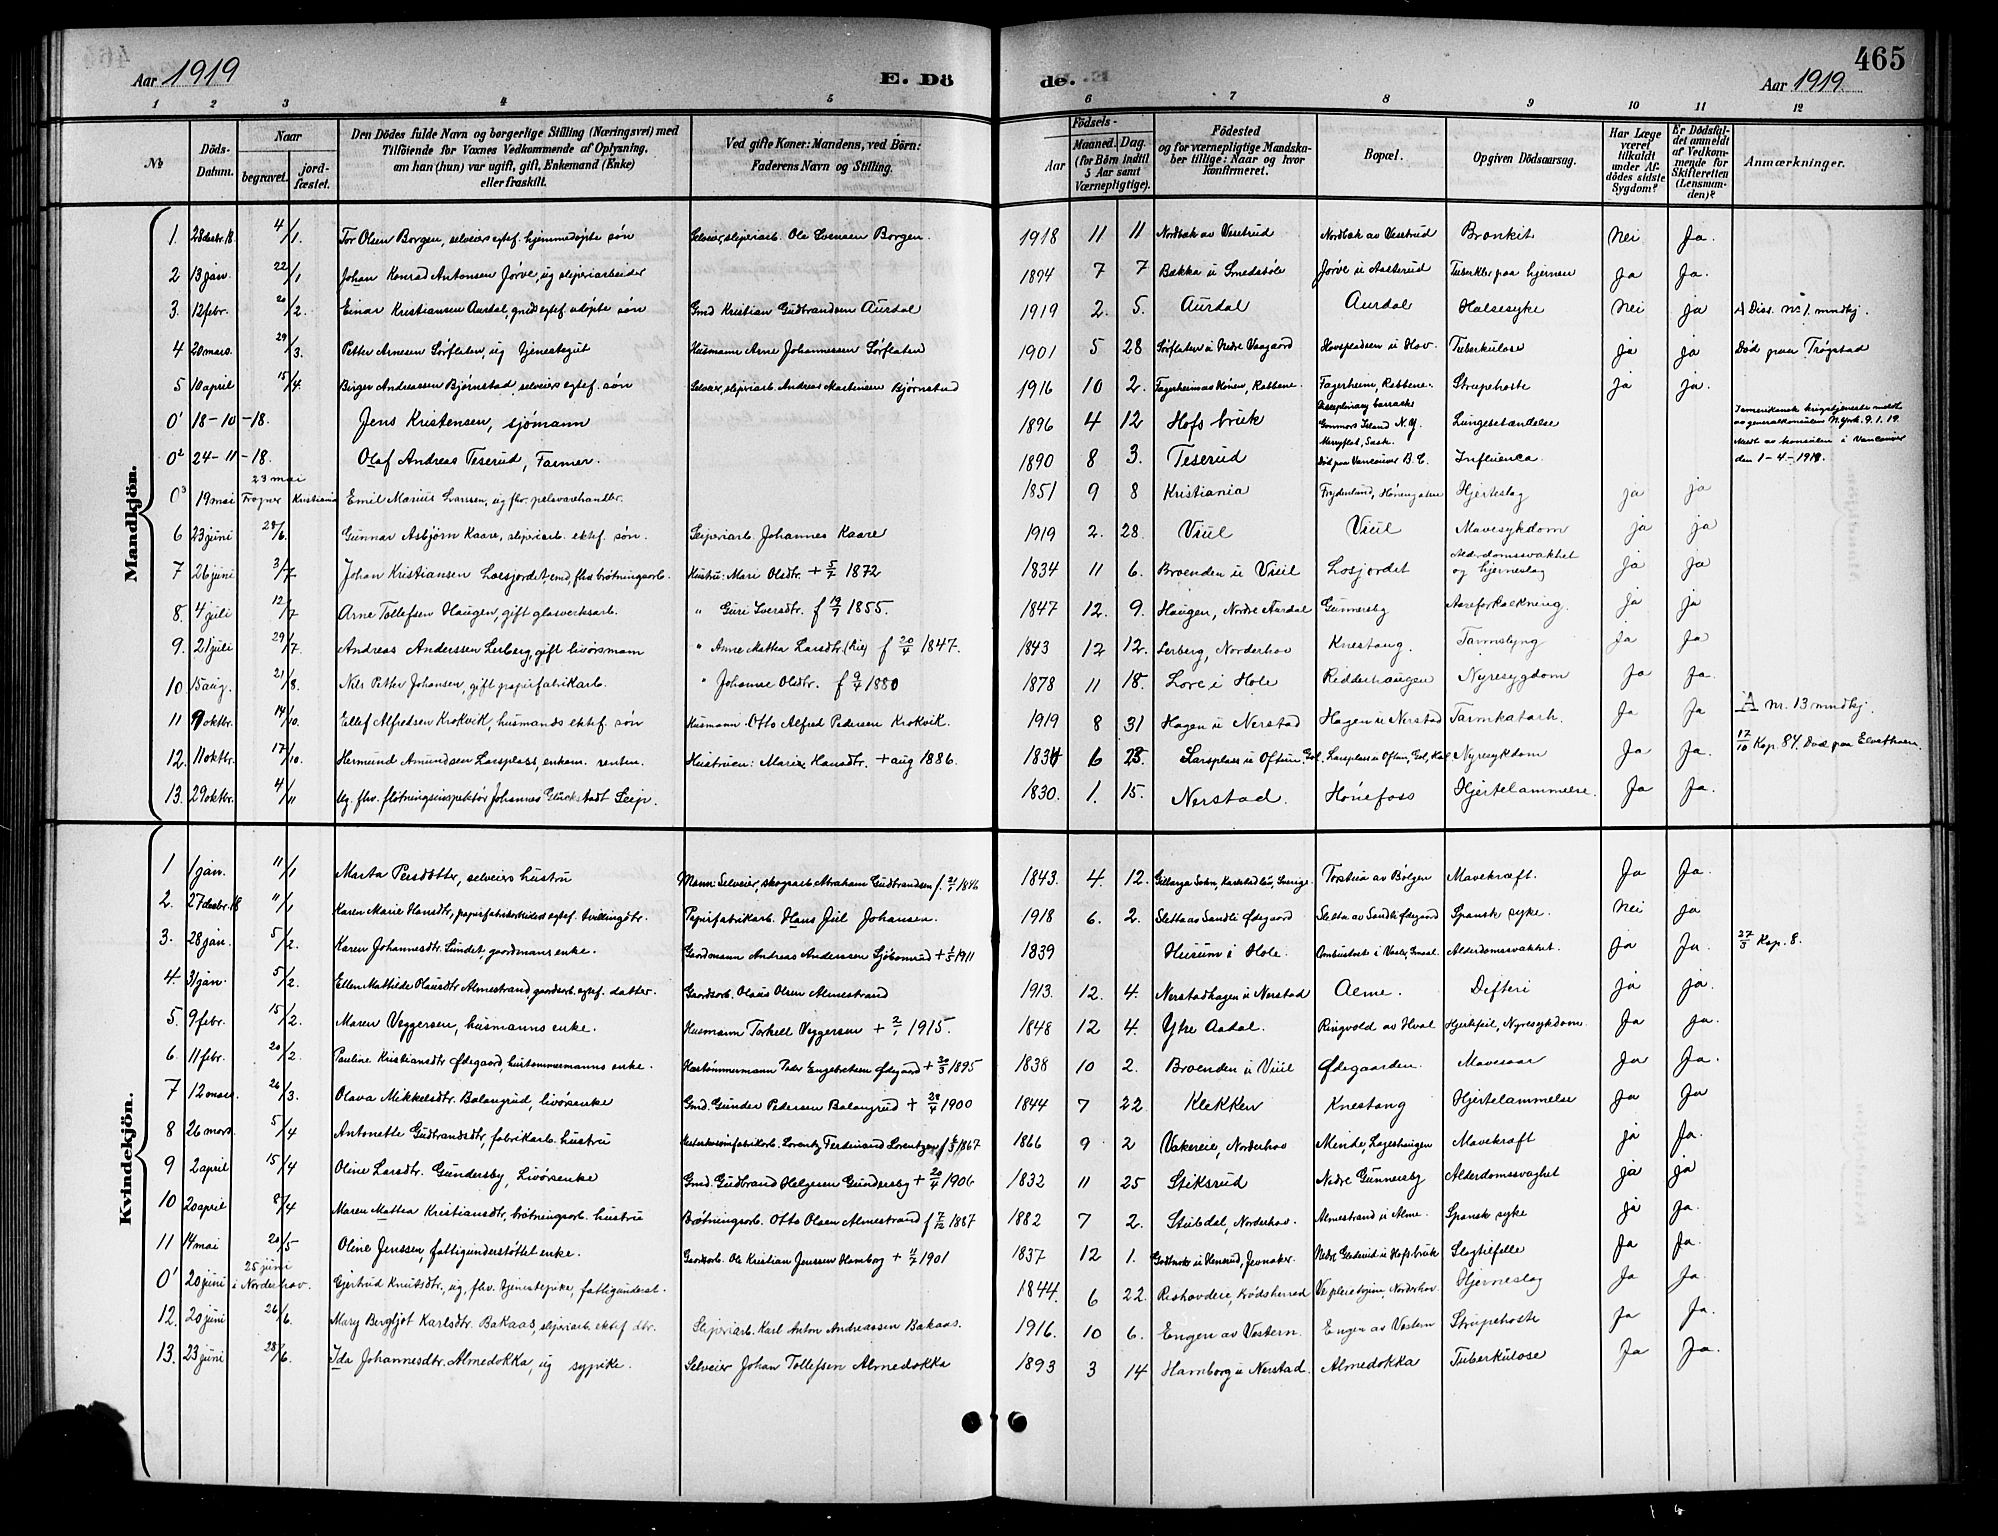 465
Aar 1919
E. Dö
de.
Aar 1919
1 2 3 4 5 6 7 8 9 10 11 12
No
Döds-Datum.
Naar
begravet.
jord-fæstet.
Den Dödes fulde Navn og borgerlige Stilling (Næringsvei) med
Tilföiende for Voxnes Vedkommende af Oplysning,
om han (hun) var ugift, gift, Enkemand (Enke)
eller fraskilt.
Ved gifte Koner: Mandens, ved Börn:
Faderens Navn og Stilling.
Födsels-
Aar
Maaned.
Dag.
(for Börn indtil
5 Aar samt
Værnepligtige).
Födested
og for værnepligtige Mandska-
ber tillige: Naar og hvor
konfirmeret.
Bopæl.
Opgiven Dödsaarsag.
Har Læge
været
tilkaldt
under Af-
dödes sidste
Sygdom?
Er Dödsfal-
det anmeldt
af Vedkom-
mende for
Skifteretten
(Lensman-
den)?
Anmærkninger.
Mandkjön.
1. 28 desbr. 18. 4/1. Tor Olsen Borgen, selveiers egtef. hjemmedøpte søn Selveier, sliperiarb. Ole Borgen. 1918 11 11 Nordbak av Viserud Nordbak av Viserud Bronkit Nei Ja.
2 13 jan. 22/1 Johan Konrad Antonsen Jørve, ug sliperiarbeider 1894 7 7 Bakka u Smedsøle Jørve u Aaserud Tuberkler paa hjernen Ja Ja.
3. 12 febr. 20/2. Einar Kristiansen Aurdal, gmds egtef udøpte søn Gmd Kristian Gudbrandsen Aurdal 1919 2. 5. Aurdal Aurdal Halsesyke Nei ja A Diss. nr 1. mndkj.
4 20 mars. 29/3. Petter Arnesen Sørflaten, ug tjenestegut Husmann Arne Johannessen Sørflaten 1901 5 28 Sørflaten u Nedre Vaagaard Hovspladsen u Hov. Tuberkulose ja ja Død paa Trøgstad
5 10 april 15/4. Birger Andreassen Bjørnstad, selveiers egtef. søn Selveier, sliperiarb. Andreas Martinsen Bjørnstad 1916 10 2. Fagerheim Fagerheim, Strupehoste ja ja.
0¹ 18-10-18. Jens Kristensen, sjømann 1896 4 12 Hofs bruk Disciplinary barracks Island N.Y. Lungebetændelse I amerikansk krigstjeneste meldt av generalkonsulen N.York. 9.1.19.
0² 24-11-18. Olaf Andreas Teserud, Farmer. 1890 8 3. Teserud Sask. Død paa Vancouver B.C. Influenca Meldt av konsulen i Vancouver den 1-4-1919.
0³ 19 mai 23 mai Frogner Kristiania Emil Marius Larssen, ug fhv. pelsvarehandler. 1851 9 8 Kristiania Frydenlund, Hjerteslag ja ja
6 23 juni 28/6. Gunnar Asbjørn Kaare, sliperiarb. ektef. søn. Sliperiarb. Johannes Kaare 1919 2. 28. Viul Viul Mavesykdom ja ja
7 26 juni 3/7 Johan Kristiansen Losjordet, emd, fhv. fløtningsarb. Hustru: Mari Olsdtr. + 5/7 1872 1834 11 6. Broenden u Viul Losjordet Alderdomssvakhet og hjerneslag ja ja
8. 4 juli 12/7 Arne Tollefsen Haugen, gift glasverksarb. " Guri Iversdtr. f 19/7 1855. 1847 12. 9. Haugen, Nordre Aurdal Gunnersby Aareforkalkning. Ja ja
9. 21 juli 29/7. Andreas Anderssen Lerberg, gift livørsmann " Anne Mathea Larsdtr. f 20/4 1847. 1843 12 12. Lerberg, Norderhov Knestang. Tarmslyng Ja Ja
10 15 aug. 21/8. Nils Petter Johansen, gift papirfabrikarb. " Johanne Olsdtr. f 9/4 1880 1878 11 18. Lore i Hole Ridderhaugen Nyresygdom Ja Ja.
11 9 oktbr. 14/10. Ellef Alfredsen Krokvik, husmands ektef. søn Husmann Otto Alfred Pedersen Krokvik 1919 8 31 Hagen u Nerstad Hagen u Nerstad Tarmkatarh. Ja Ja A nr. 13 mndkj.
12. 11 oktbr. 17/10. Hermund Amundsen Larsplass, enkem. rentier. Hustruen: Maria Hansdtr. + aug 1886. 1834 6 28. Larsplass u Oftun, Gol. Larsplass u Oftun, Gol, Hal. Nyresykdom Ja Ja. 17/10 Kap. 84. Død paa
13. 29 oktbr. 4/11 Ug. fhv. fløtningsinspektør Johannes Glückstadt Leip. 1830. 1. 15. Nerstad. Hønefoss Hjertelammelse. Ja Ja.
Kvindekjön.
1 1 jan. 11/1 Marta Persdotter, selveiers hustru Mann: Selveier, skogsarb Abraham Gudbrandsen f. 21/ 1846 1843. 4. 12. Gillarga Sokn, Karlstad län, Sverige. av Bølgen Mavekræft. Ja Ja.
2. 27 desbr. 18 11/1 Karen Marie Hansdtr, papirfabrikarbeiders egtef. tvillingdtr. Papirfabrikarb. Hans Jul Johansen. 1918 6. 2. Sletta av Sandli Ødegaard Sletta av Sandli Ødegaard Spansk syke. Nei ja
3. 28 jan. 5/2. Karen Johannesdtr. Sundet, gaardmans enke. Gaardmann Andreas Anderssen Sjøbonrud + 1/5 1911 1839 Husum i Hole. Alderdomssvakhet. ja Ja. 27/3 Kap. 8.
4. 31 jan. 5/2. Ellen Mathilde Olausdtr Almestrand, gaardsarb. egtef. datter. Gaardsarb. Olaus Olsen Almestrand 1913. 12. 4. Nerstadhagen u Nerstad Alme. Difteri ja ja.
5. 9 febr. 15/2. Maren Veggersen, husmanns enke. Husmann Torkell Veggersen + 2/1 1915. 1848 12 4. Ytre Aadal. Ringvold av Hval Hjertefeil, Nyresykdom Ja ja.
6 11 febr. 20/2. Pauline Kristiansdtr Ødegaard, hustømmermanns enke. Hustømmermann Peder Engebretsen Ødegaard + 30/3 1895 1838 10 2. Broenden u Viul Ødegaarden. Mavesaar Ja Ja.
7 12 mars. 26/3. Olava Mikkelsdtr. Balangrud, livørsenke Gmd. Gunder Pedersen Balangrud + 28/4 1900 1844 7 22. Klekken Knestang Hjertelammelse Ja Ja
8 26 mars. 5/4 Antonette Gudbrandsdtr, fabrikarb. hustru Lorentz Ferdinand Lorentzen f 6/3 1867 1866 9 2 Vakereie, Norderhov Minde, Lageshaugen Mavekræft ja Ja.
9 2 april 15/4 Oline Larsdtr. Gundersby, Livørsenke Gmd. Gudbrand Helgesen Gundersby + 20/4 1906 1832 11 25 Stiksrud Nedre Gunnersby Alderdomssvaghet ja ja
10 20 april 8/4 Maren Mathea Kristiansdtr, brøtningsarb. hustru Brøtningsarb. Otto Olsen Almestrand f 7/12 1887 1882 7 2. Stubdal, Norderhov. Almestrand u Alme. Spansk syke ja Ja.
11 14 mai 20/5 Oline Jenssen, fattigunderstøttet enke. Gaardsarb. Ole Kristian Jenssen Hamborg + 4/7 1901 1837 12 1. u Hensrud, Jevnaker. Nedre u Hofs bruk Slagtilfelle Ja Ja.
0¹ 20 juni 25 juni i Norderhov. Gjertrud Knutsdtr., ug, fhv. tjenestepike, fattigunderst. 1844. 6 22. Rishovdeie, Krødsherred pleiehjem, Norderhov Hjerneslag Ja Ja.
12. 20 juni 26/6. Mary Bergljot Karlsdtr. Bakaas, sliperiarb. ektef dtr. Sliperiarb. Karl Anton Andreassen Bakaas. 1916 10 6. Engen av Vestern. Engen av Vestern Strupehoste Ja Ja.
13. 23 juni 28/6. Ida Johannesdtr. Almedokka, ug sypike. Selveier Johan Tollefsen Almedokka 1893 3 14 Hamborg u Nerstad. Almedokka Tuberkulose Ja Ja.